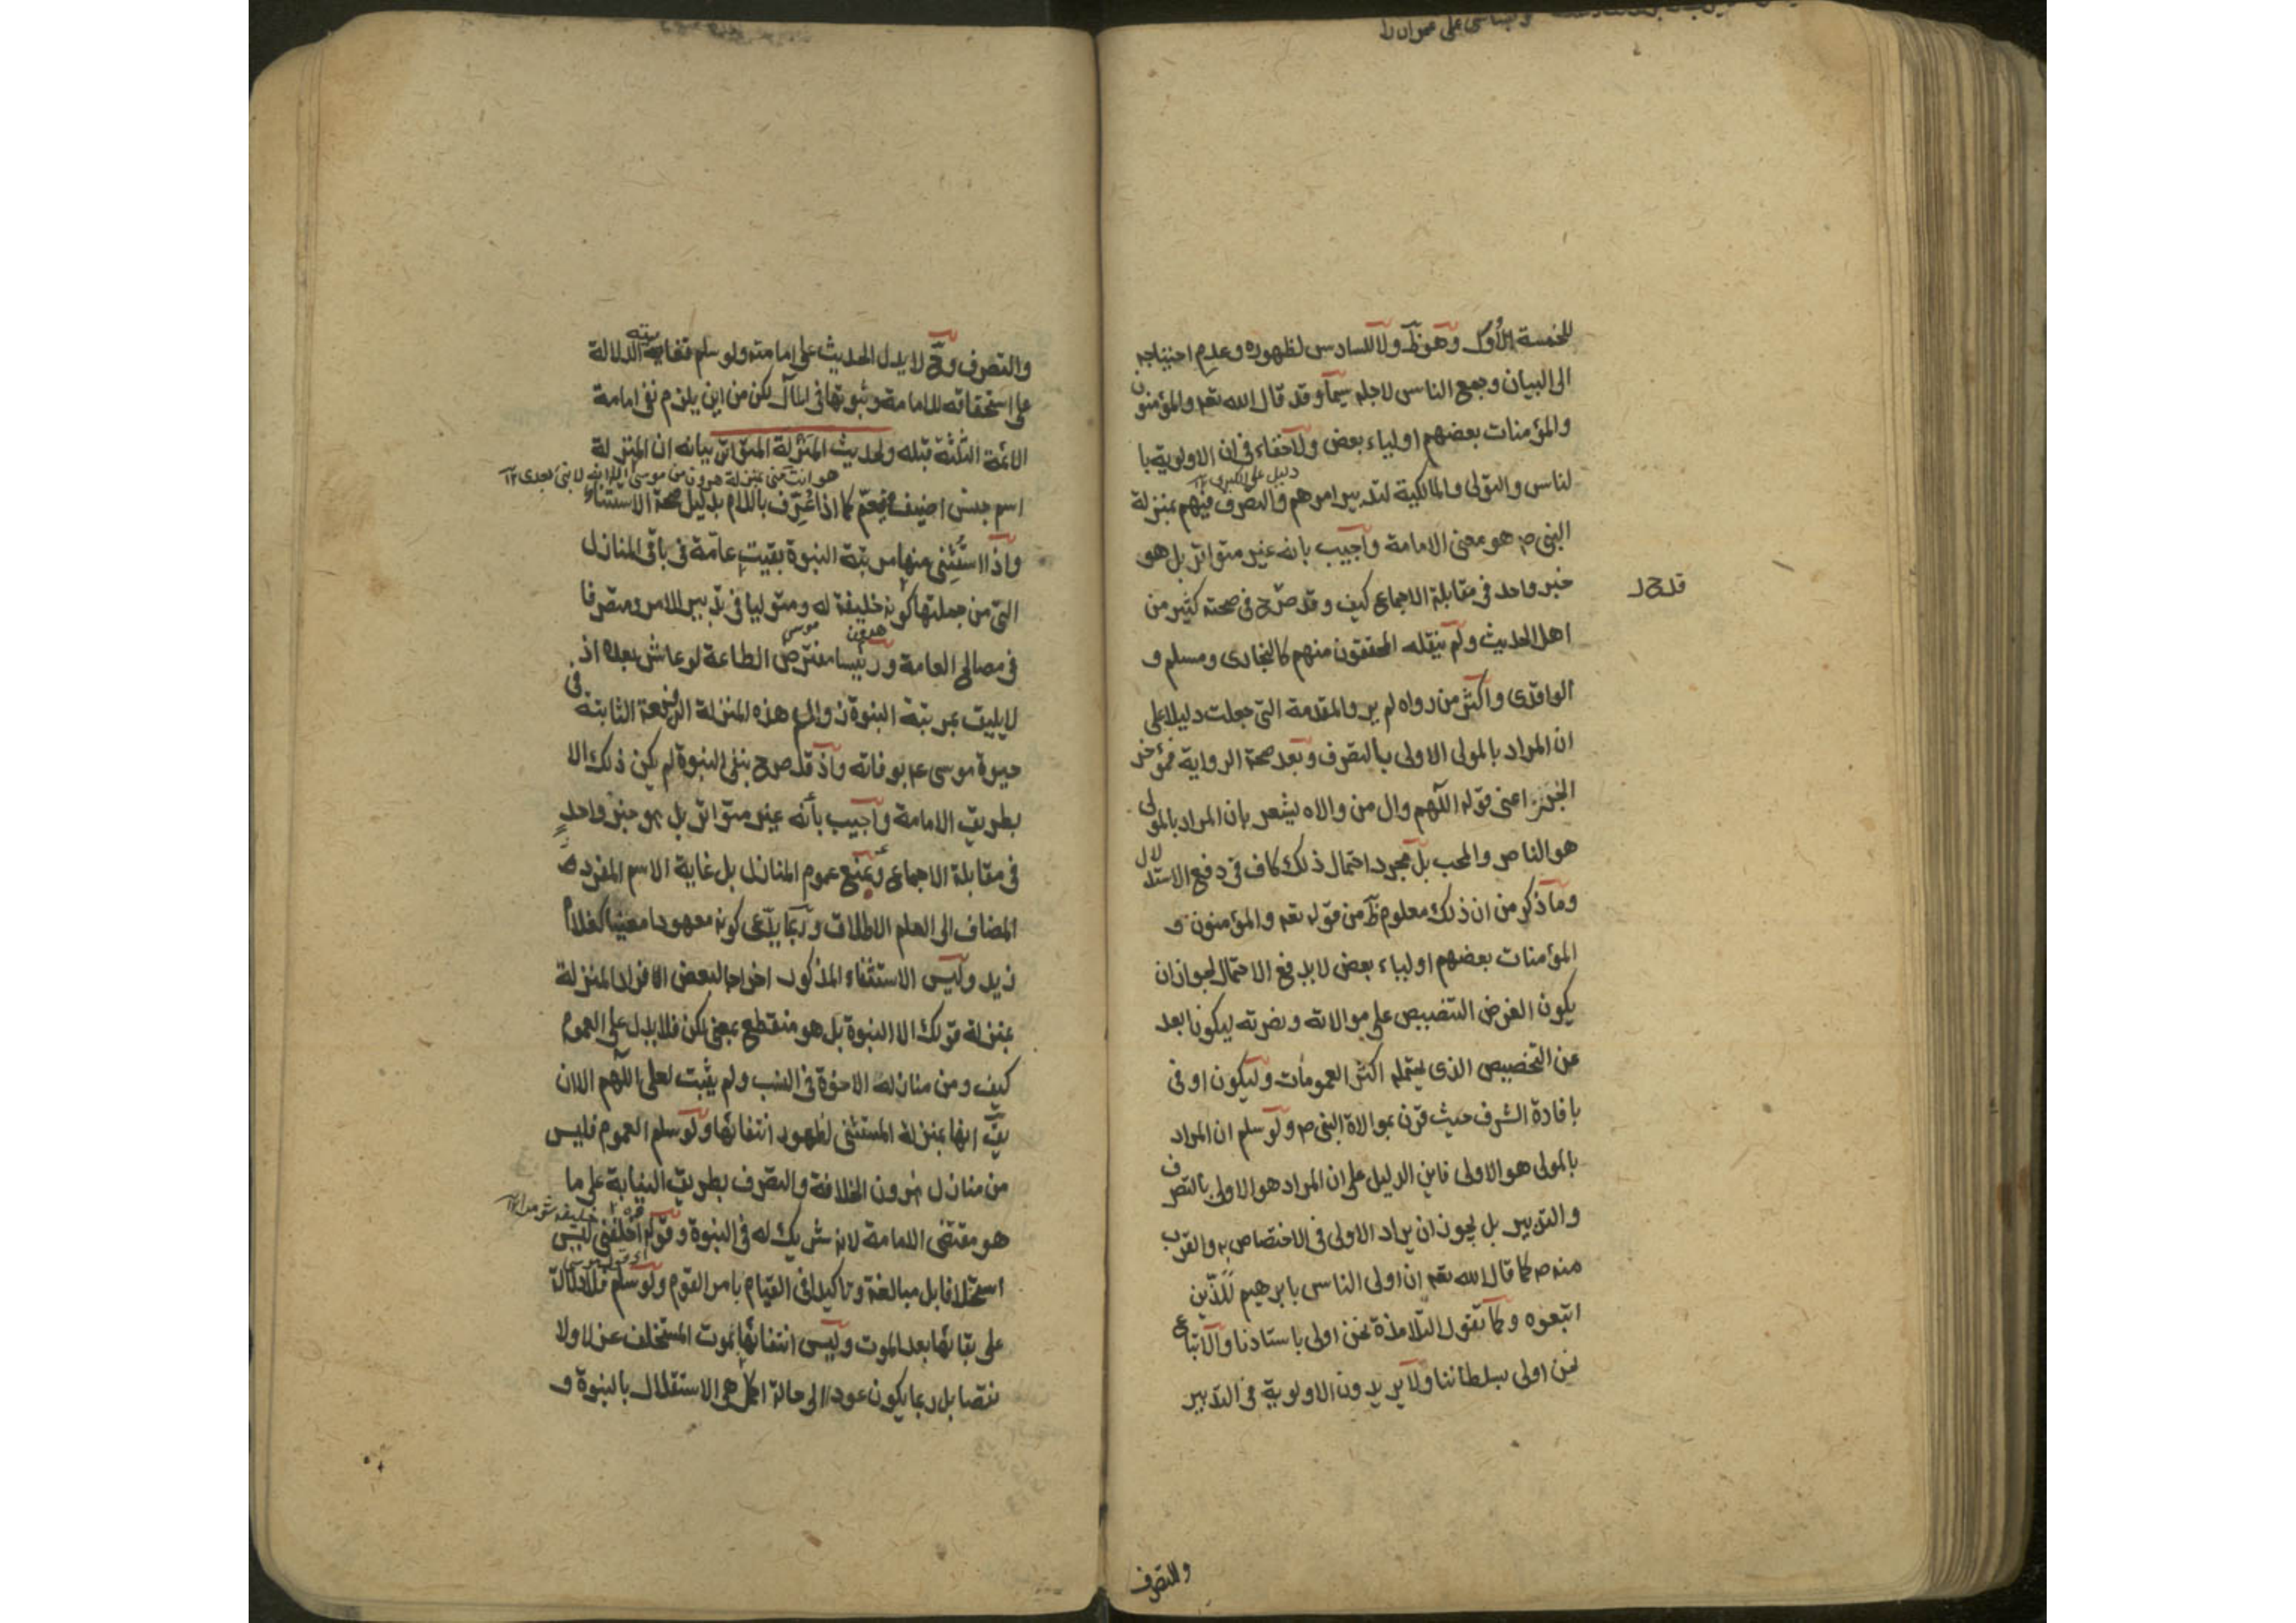 للخمسة الاُوَل وهو ظَ ولا للسادس لظهوره وعدم احتياجه
الى البيان وجمع الناس لاجله سيما وقد قال الله تعه والمؤمنون
والمؤمنات بعضهم اولياء بعض ولا خفاء فى ان الاولوية با
دليل على الكبرى ١٢
لناس والتولى والمالكية لتدبير امرهم والتصرف فيهم بمنزلة
النبى ص هو معنى الامامة واجيب بانه غير متواتر بل هو
خبر واحد فى مقابلة الاجماع كيف وقد قدح فى صحته كثير من
قدح
اهل الحديث ولم ينقله المحققون منهم كالبخارى ومسلم و
الواقدى واكثر من رواه لم يرو المقدمة التى جعلت دليلا على
ان المراد بالمولى الاولى بالتصرف وبعد صحة الرواية فمؤخر
الخبر اعنى قوله اللهم وال من والاه يشعر بان المراد بالمولى
هو الناصر والمحب بل مجرد احتمال ذلك كاف فى دفع الاستدلال
وما ذكر من ان ذلك معلوم ظَ من قوله تعه والمؤمنون و
المؤمنات بعضهم اولياء بعض لا يدفع الاحتمال لجواز ان
يكون الغرض التنصيص على موالاته ونصرته ليكون ابعد
عن التخصيص الذى يحتمله اكثر العمومات وليكون اوفى
بافادة الشرف حيث قرن بموالاة النبى ص ولو سلم ان المراد
بالمولى هو الاولى فاين الدليل على ان المراد هو الاولى بالتصرف
والتدبير بل يجوز ان يراد الاولى فى الاختصاص به والقرب
منه ص كما قال الله تعه ان اولى الناس بابرهيم للذين
اتبعوه وكما تقول التلامذة نحن اولى باستادنا والاتباع
نحن اولى بسلطاننا ولا يريدون الاولوية فى التدبير
والتصرف
والتصرف وحَ لا يدل الحديث على امامته ولو سلم فغايته الدلالة
على استحقاقه للامامة وثبوتها فى المآل لكن من اين يلزم نفى امامة
الائمة الثلثة قبله ولحديث المنزلة المتواتر بيانه ان المنزلة
هو انت منى بمنزلة هرون من موسى الا انه لا نبى بعدى ١٢
اسم جنس اضيف فيعم كما اذا عُرّف باللام بدليل صحة الاستثناء
واذا استُثنى منها مرتبة النبوة بقيت عامة فى باقى المنازل
التى من جملتها كونه خليفة له ومتوليا فى تدبير الامر ومتصرفا
هرون موسى
فى مصالح العامة ورئيسا مفترض الطاعة لو عاش بعده اذ
لا يليق بمرتبة النبوة زوال هذه المنزلة الرفيعة الثابتة فى
حيوة موسى عم بوفاته واذ قد صرح بنفى النبوة لم يكن ذلك الا
بطريق الامامة واجيب بأنه غير متواتر بل هو خبر واحد
فى مقابلة الاجماع وبمنع عموم المنازل بل غاية الاسم المفرد
المضاف الى العلم الاطلاق وربما يدّعى كونه معهودا معينا كغلام
زيد وليس الاستثناء المذكور اخراجا لبعض الافراد المنزلة
بمنزلة قولك الا النبوة بل هو منقطع بمعنى لكن فلا يدل على العموم
كيف ومن منازله الاخوة فى النسب ولم يثبت لعلى اللهم الا ان
يقَ انها بمنزلة المستثنى لظهور انتفائها ولو سلم العموم فليس
من منازل هرون الخلافة والتصرف بطريق النيابة على ما
هو مقتضى الامامة لانه شريك له فى النبوة وقوله اخلفنى ليس
استخلافا بل مبالغة وتاكيدا فى القيام بامر القوم ولو سلم فلا دلالة
على بقائها بعد الموت وليس انتفائها بموت المستخلف عزلا ولا
نقصا بل ربما يكون عودا الى حالة اكمل هى الاستقلال بالنبوة و